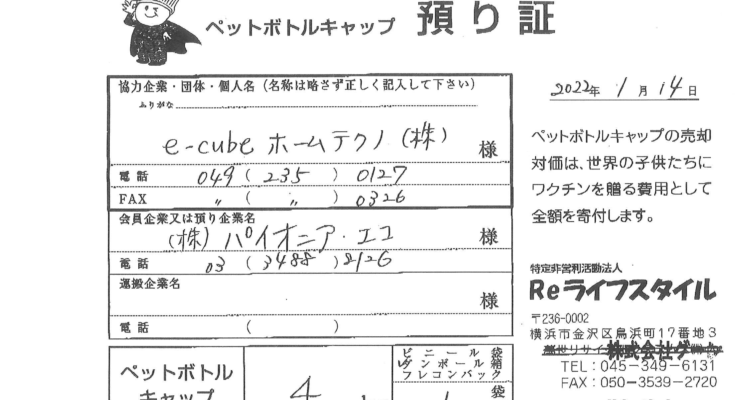 ペットボトルキャップ 預り証
協力企業・団体・個人名（名称は略さず正しく記入して下さい）
ふりがな
e-cube ホームテクノ（株） 様
電話 049 ( 235 ) 0127
FAX 〃 ( 〃 ) 0326
会員企業又は預り企業名
（株）パイオニア・エコ 様
電話 03 ( 3488 ) 2126
運搬企業名
様
電話 ( )
ペットボトル
キャップ
4
ビニール袋
ダンボール箱
フレコンバック
袋
2022年 1月 14日
ペットボトルキャップの売却
対価は、世界の子供たちに
ワクチンを贈る費用として
全額を寄付します。
特定非営利活動法人
Reライフスタイル
〒236-0002
横浜市金沢区鳥浜町17番地3
株式会社
TEL：045-349-6131
FAX：050-3539-2720